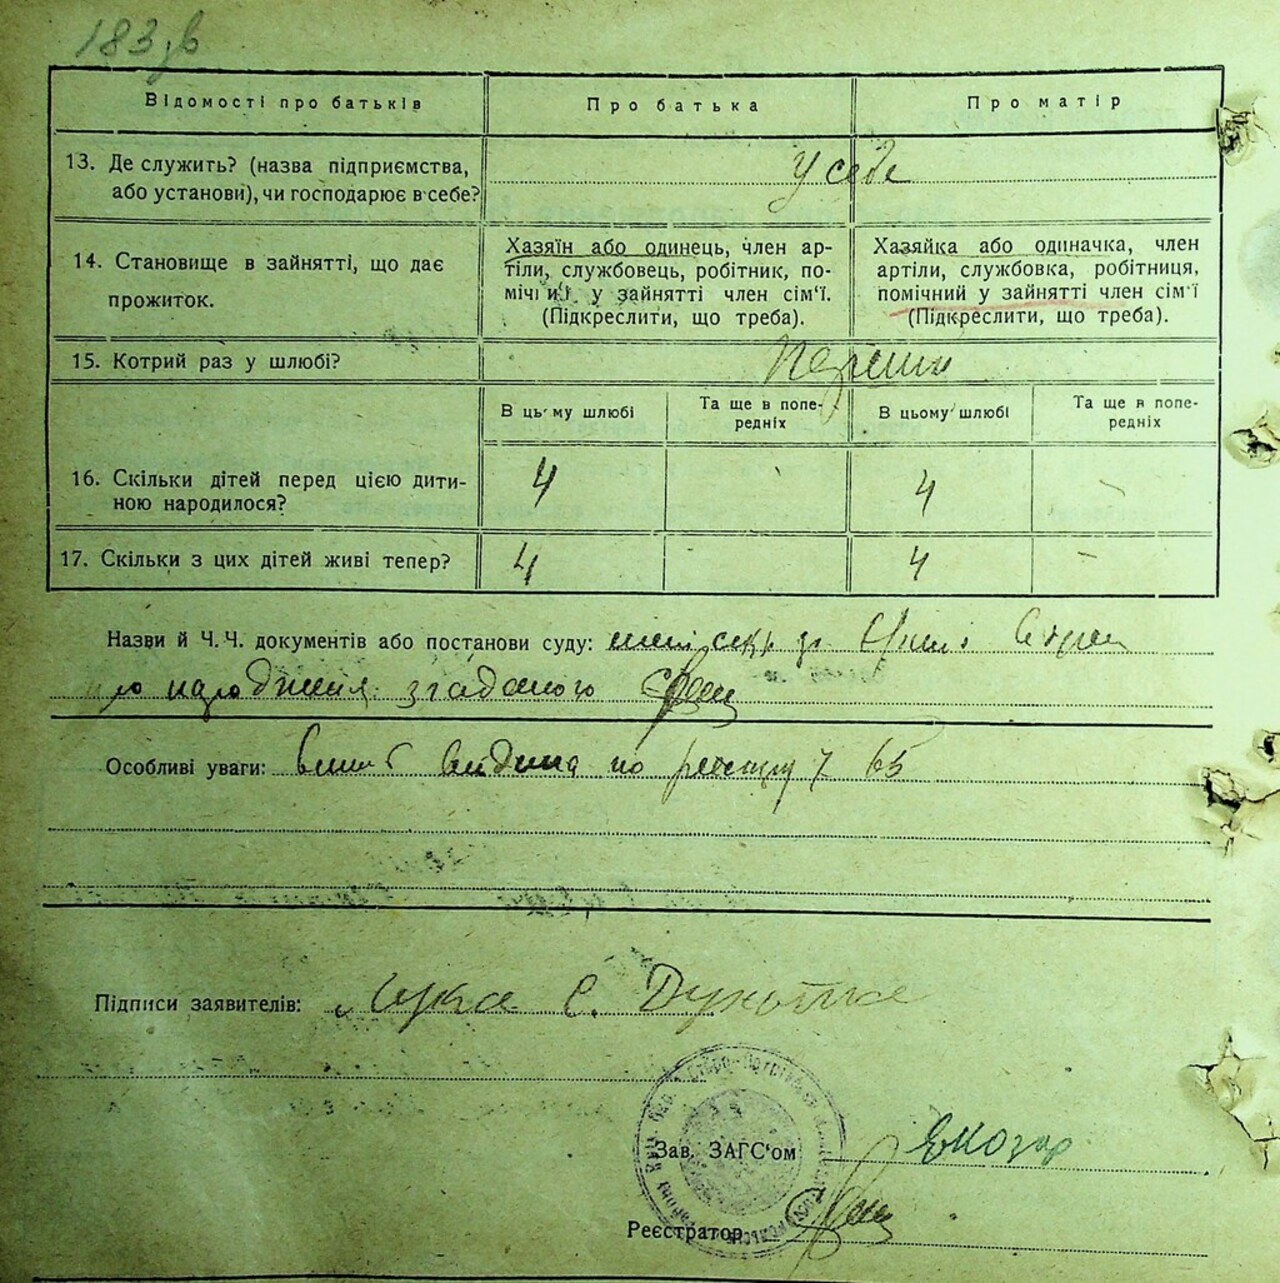 183 зв
Відомості про батьків
Про батька
Про матір
13. Де служить? (назва підприємства,
або установи), чи господарює в себе?
У себе
14. Становище в зайнятті, що дає
прожиток.
Хазяїн або одинець, член ар-
тіли, службовець, робітник, по-
мічний у зайнятті член сім'ї.
(Підкреслити, що треба).
Хазяйка або одиначка, член
артіли, службовка, робітниця,
помічний у зайнятті член сім'ї
(Підкреслити, що треба).
15. Котрий раз у шлюбі?
Перший
В цьому шлюбі
Та ще в попе-
редніх
В цьому шлюбі
Та ще в попе-
редніх
16. Скільки дітей перед цією дити-
ною народилося?
4
4 -
17. Скільки з цих дітей живі тепер?
4
4 -
Назви й Ч.Ч. документів або постанови суду:
про народження згаданого
Особливі уваги: видана по реєстру 65
Підписи заявителів: Лука С.
Зав. ЗАГС'ом
Реєстратор